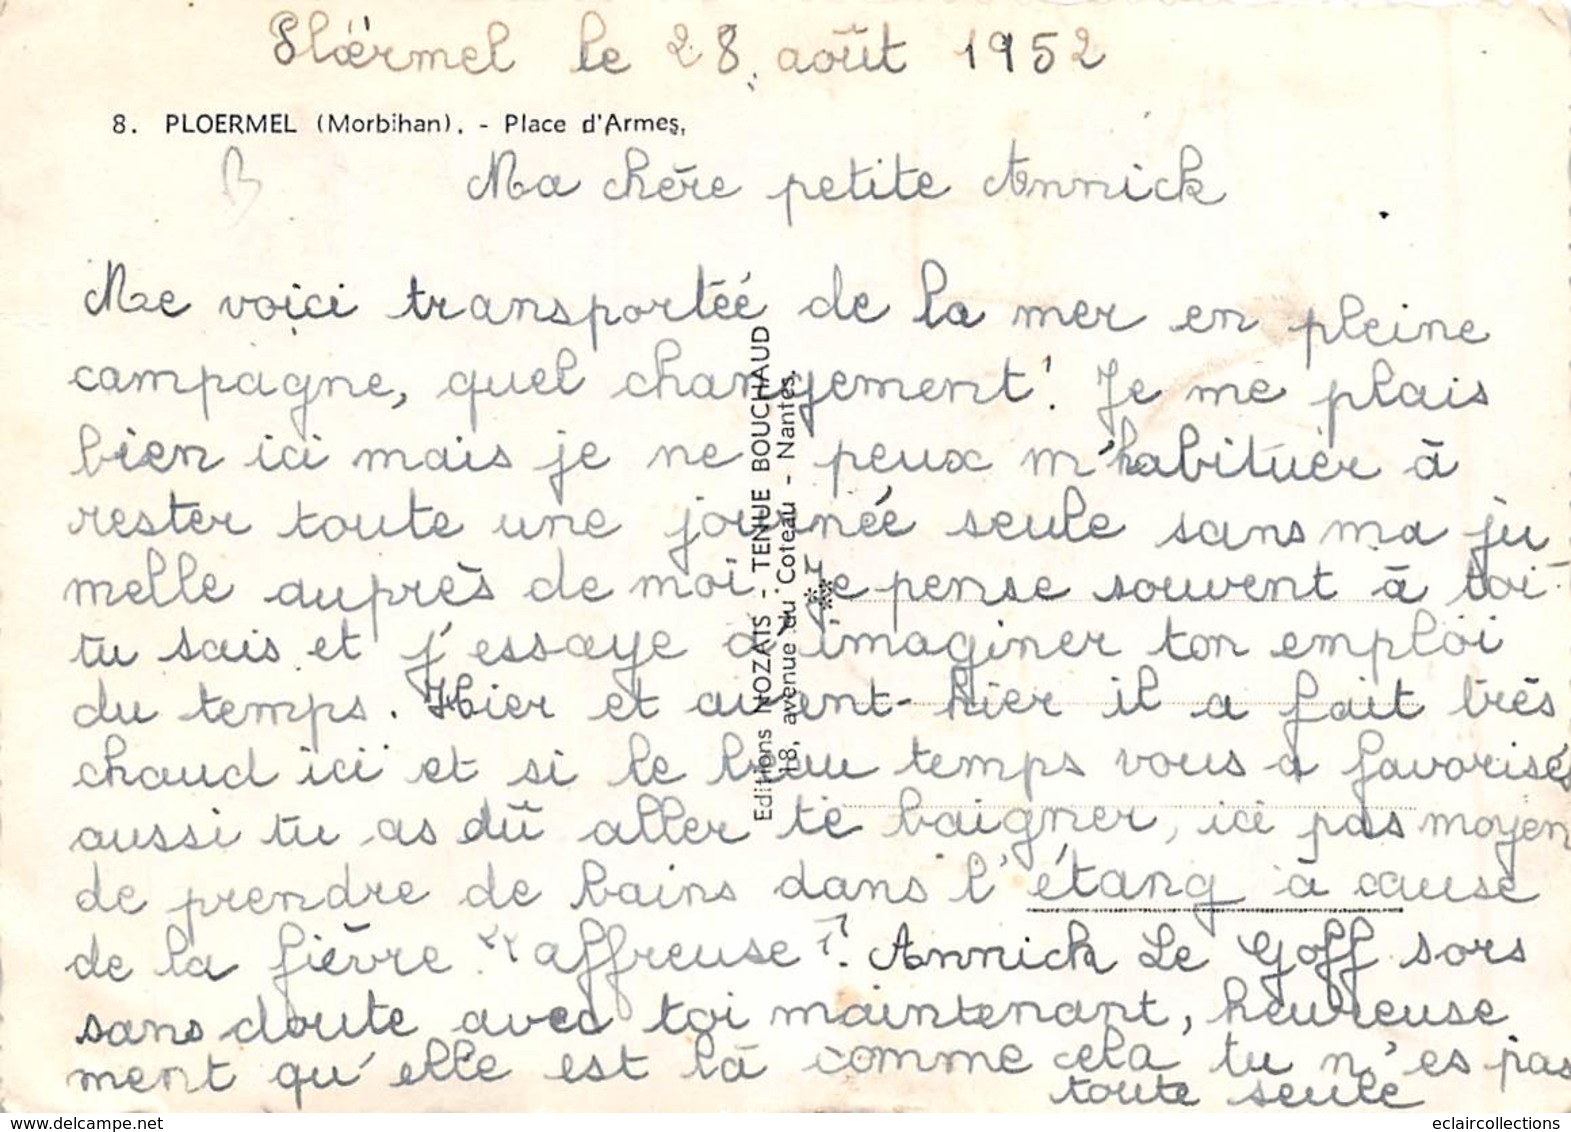 Ploërmel le 28 août 1952
8. PLOERMEL (Morbihan). - Place d'Armes,
B
Ma chère petite Annick
Me voici transportée de la mer en pleine
campagne, quel changement! Je me plais
bien ici mais je ne peux m'habituer à
rester toute une journée seule sans ma ju
melle auprès de moi. Je pense souvent à toi
tu sais et j'essaye d'imaginer ton emploi
du temps. Hier et avant-hier il a fait très
chaud ici et si le beau temps vous a favorisés
aussi tu as dû aller te baigner, ici pas moyen
de prendre de bains dans l'étang à cause
de la fièvre "affreuse". Annick Le Goff sors
sans doute avec toi maintenant, heureuse
ment qu'elle est là comme cela tu n'es pas
toute seule
Editions NOZAIS - TENUE BOUCHAUD
18, avenue du Coteau - Nantes.
www.delcampe.net
eclaircollections